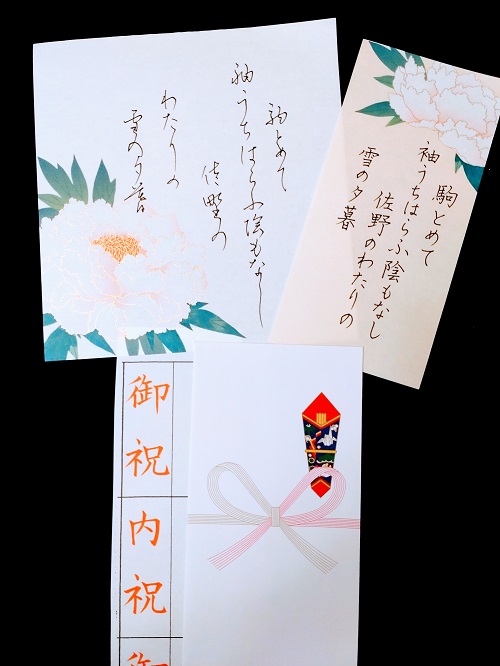 駒とめて
袖うちはらふ陰もなし
佐野の
わたりの
雪の夕暮
駒とめて
袖うちはらふ陰もなし
佐野のわたりの
雪の夕暮
御祝
内祝
御